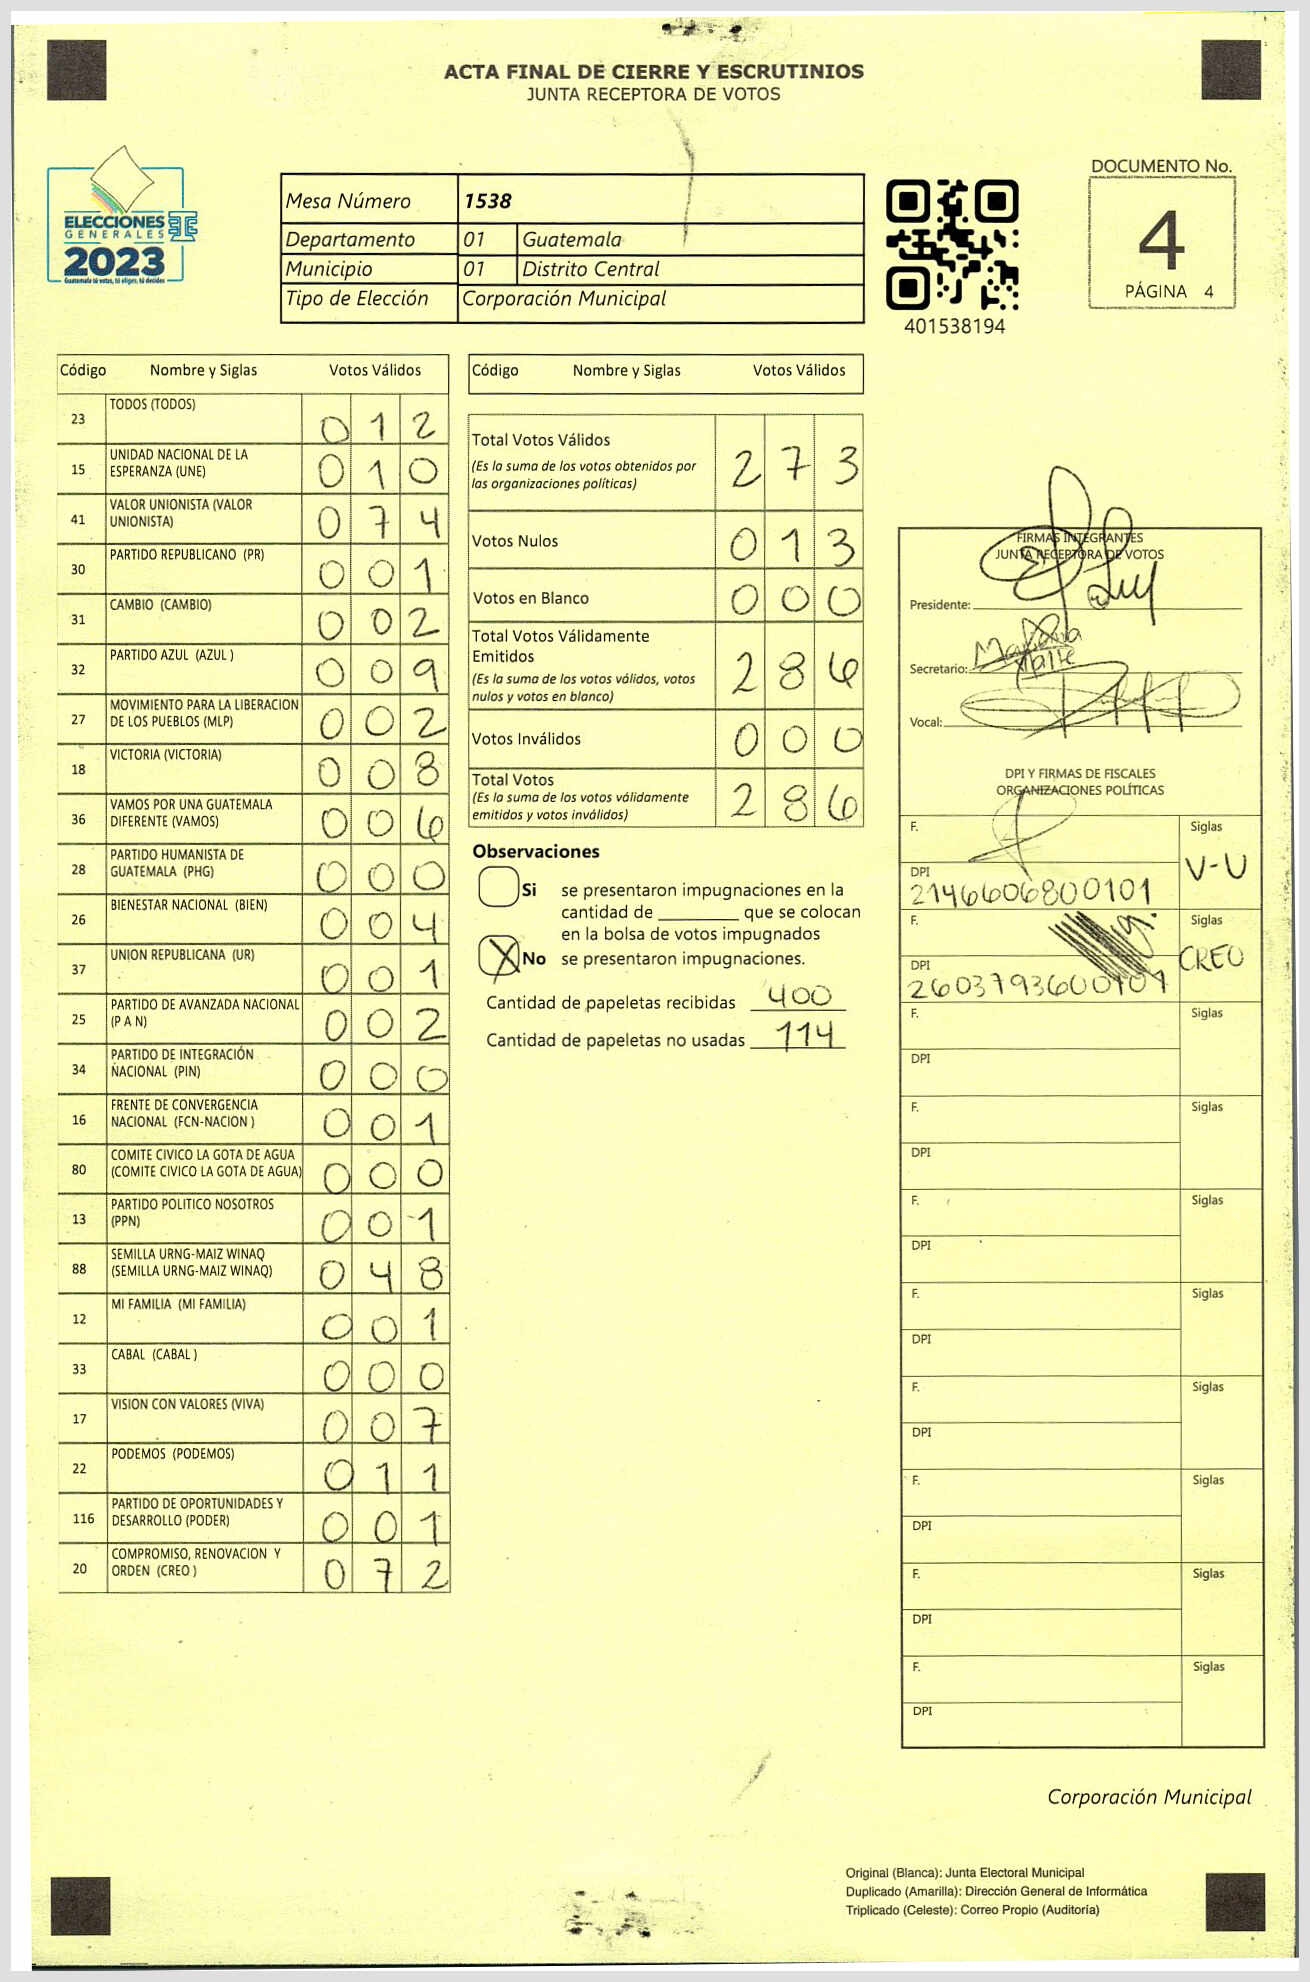 ACTA FINAL DE CIERRE Y ESCRUTINIOS
JUNTA RECEPTORA DE VOTOS
ELECCIONES
GENERALES
2023
Guatemala tú votas, tú eliges, tú decides
Mesa Número 1538
Departamento 01 Guatemala
Municipio 01 Distrito Central
Tipo de Elección Corporación Municipal
401538194
DOCUMENTO No.
4
PÁGINA 4
Código Nombre y Siglas Votos Válidos
23 TODOS (TODOS) 0 1 2
15 UNIDAD NACIONAL DE LA
ESPERANZA (UNE) 0 1 0
41 VALOR UNIONISTA (VALOR
UNIONISTA) 0 7 4
30 PARTIDO REPUBLICANO (PR) 0 0 1
31 CAMBIO (CAMBIO) 0 0 2
32 PARTIDO AZUL (AZUL ) 0 0 9
27 MOVIMIENTO PARA LA LIBERACION
DE LOS PUEBLOS (MLP) 0 0 2
18 VICTORIA (VICTORIA) 0 0 8
36 VAMOS POR UNA GUATEMALA
DIFERENTE (VAMOS) 0 0 6
28 PARTIDO HUMANISTA DE
GUATEMALA (PHG) 0 0 0
26 BIENESTAR NACIONAL (BIEN) 0 0 4
37 UNION REPUBLICANA (UR) 0 0 1
25 PARTIDO DE AVANZADA NACIONAL
(P A N) 0 0 2
34 PARTIDO DE INTEGRACIÓN
NACIONAL (PIN) 0 0 0
16 FRENTE DE CONVERGENCIA
NACIONAL (FCN-NACION ) 0 0 1
80 COMITE CIVICO LA GOTA DE AGUA
(COMITE CIVICO LA GOTA DE AGUA) 0 0 0
13 PARTIDO POLITICO NOSOTROS
(PPN) 0 0 1
88 SEMILLA URNG-MAIZ WINAQ
(SEMILLA URNG-MAIZ WINAQ) 0 4 8
12 MI FAMILIA (MI FAMILIA) 0 0 1
33 CABAL (CABAL ) 0 0 0
17 VISION CON VALORES (VIVA) 0 0 7
22 PODEMOS (PODEMOS) 0 1 1
116 PARTIDO DE OPORTUNIDADES Y
DESARROLLO (PODER) 0 0 1
20 COMPROMISO, RENOVACION Y
ORDEN (CREO ) 0 7 2
Código Nombre y Siglas Votos Válidos
Total Votos Válidos
(Es la suma de los votos obtenidos por
las organizaciones políticas) 2 7 3
Votos Nulos 0 1 3
Votos en Blanco 0 0 0
Total Votos Válidamente
Emitidos
(Es la suma de los votos válidos, votos
nulos y votos en blanco) 2 8 6
Votos Inválidos 0 0 0
Total Votos
(Es la suma de los votos válidamente
emitidos y votos inválidos) 2 8 6
Observaciones
Si se presentaron impugnaciones en la
cantidad de ________ que se colocan
en la bolsa de votos impugnados
X No se presentaron impugnaciones.
Cantidad de papeletas recibidas 400
Cantidad de papeletas no usadas 114
FIRMAS INTEGRANTES
JUNTA RECEPTORA DE VOTOS
Presidente:
Secretario:
Vocal:
DPI Y FIRMAS DE FISCALES
ORGANIZACIONES POLÍTICAS
F. Siglas
V-U
DPI
2146606800101
F. Siglas
CREO
DPI
2603793600101
F. Siglas
DPI
F. Siglas
DPI
F. Siglas
DPI
F. Siglas
DPI
F. Siglas
DPI
F. Siglas
DPI
F. Siglas
DPI
F. Siglas
DPI
Corporación Municipal
Original (Blanca): Junta Electoral Municipal
Duplicado (Amarilla): Dirección General de Informática
Triplicado (Celeste): Correo Propio (Auditoría)